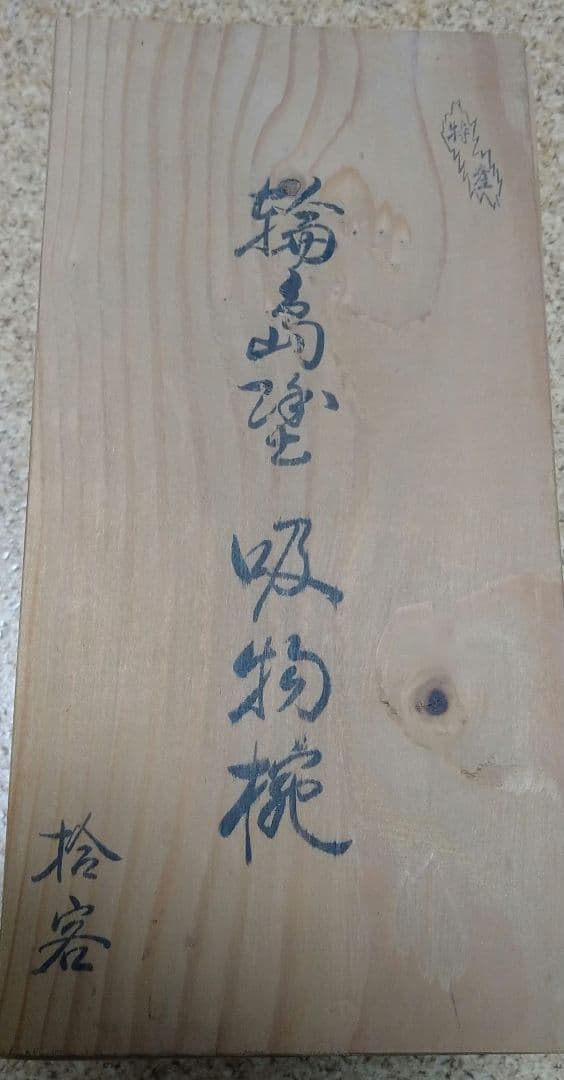 特
輪島塗 吸物椀
拾客